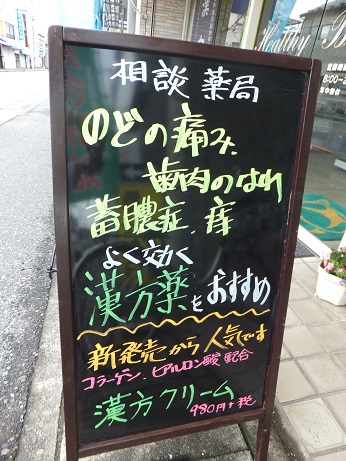 相談薬局
のどの痛み、
歯肉のはれ
蓄膿症、痔
よく効く
漢方薬をおすすめ
新発売から人気です
コラーゲン、ヒアルロン酸配合
漢方クリーム
980円+税
Healthy